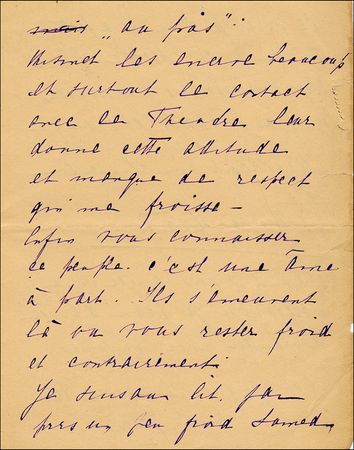 „au pas":
les encore beaucoup
et surtout le contact
avec le Theadre leur
donne cette attitude
et manque de respect
qui me froisse –
Enfin vous connaisser
ce peuple. c'est une âme
à part. Ils s'emeuvent
là ou vous rester froid
et contrairement.
Je suis au lit. j'ai
pris un peu froid Samed